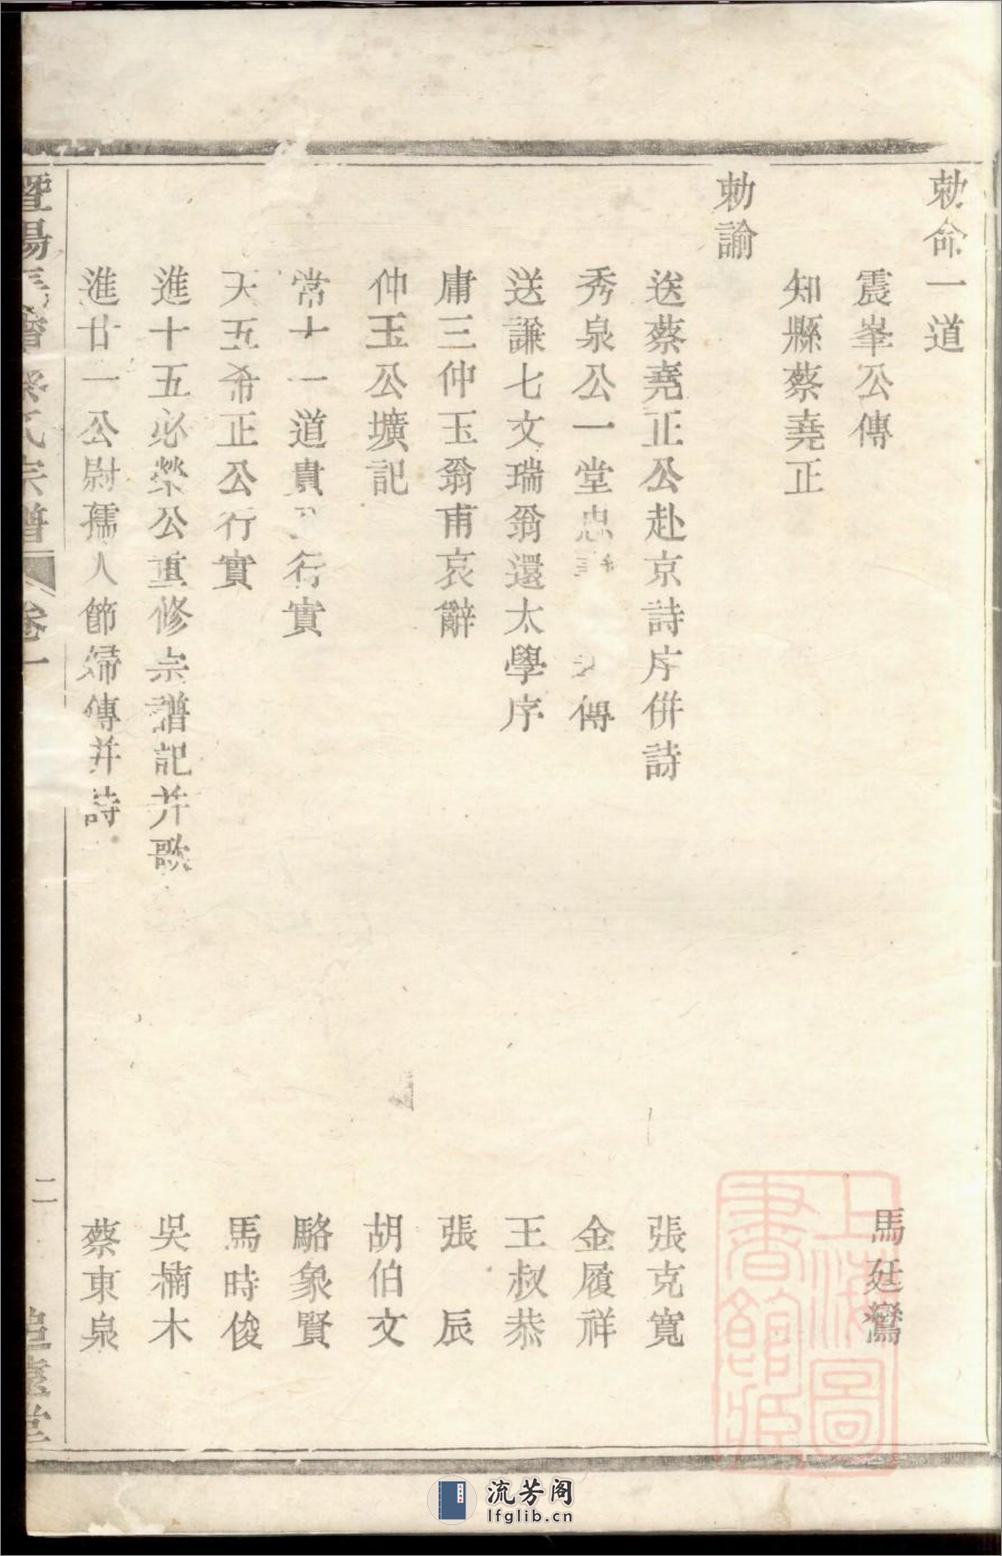 勅命一道
震峯公傳 馬廷鸞
知縣蔡堯正
勅諭
送蔡堯正公赴京詩序併詩 張克寬
秀泉公一堂忠 傳 金履祥
送謙七文瑞翁還太學序 王叔恭
庸三仲玉翁甫哀辭 張辰
仲玉公壙記 胡伯文
常十一道貴 行實 駱象賢
天五希正公行實 馬時俊
進十五必榮公重修宗譜記并歌 吳楠木
進廿一公尉孺人節婦傳并詩 蔡東泉
暨陽 蔡氏宗譜 卷一 二 追遠堂
上海圖書館藏
流芳阁
lfglib.cn